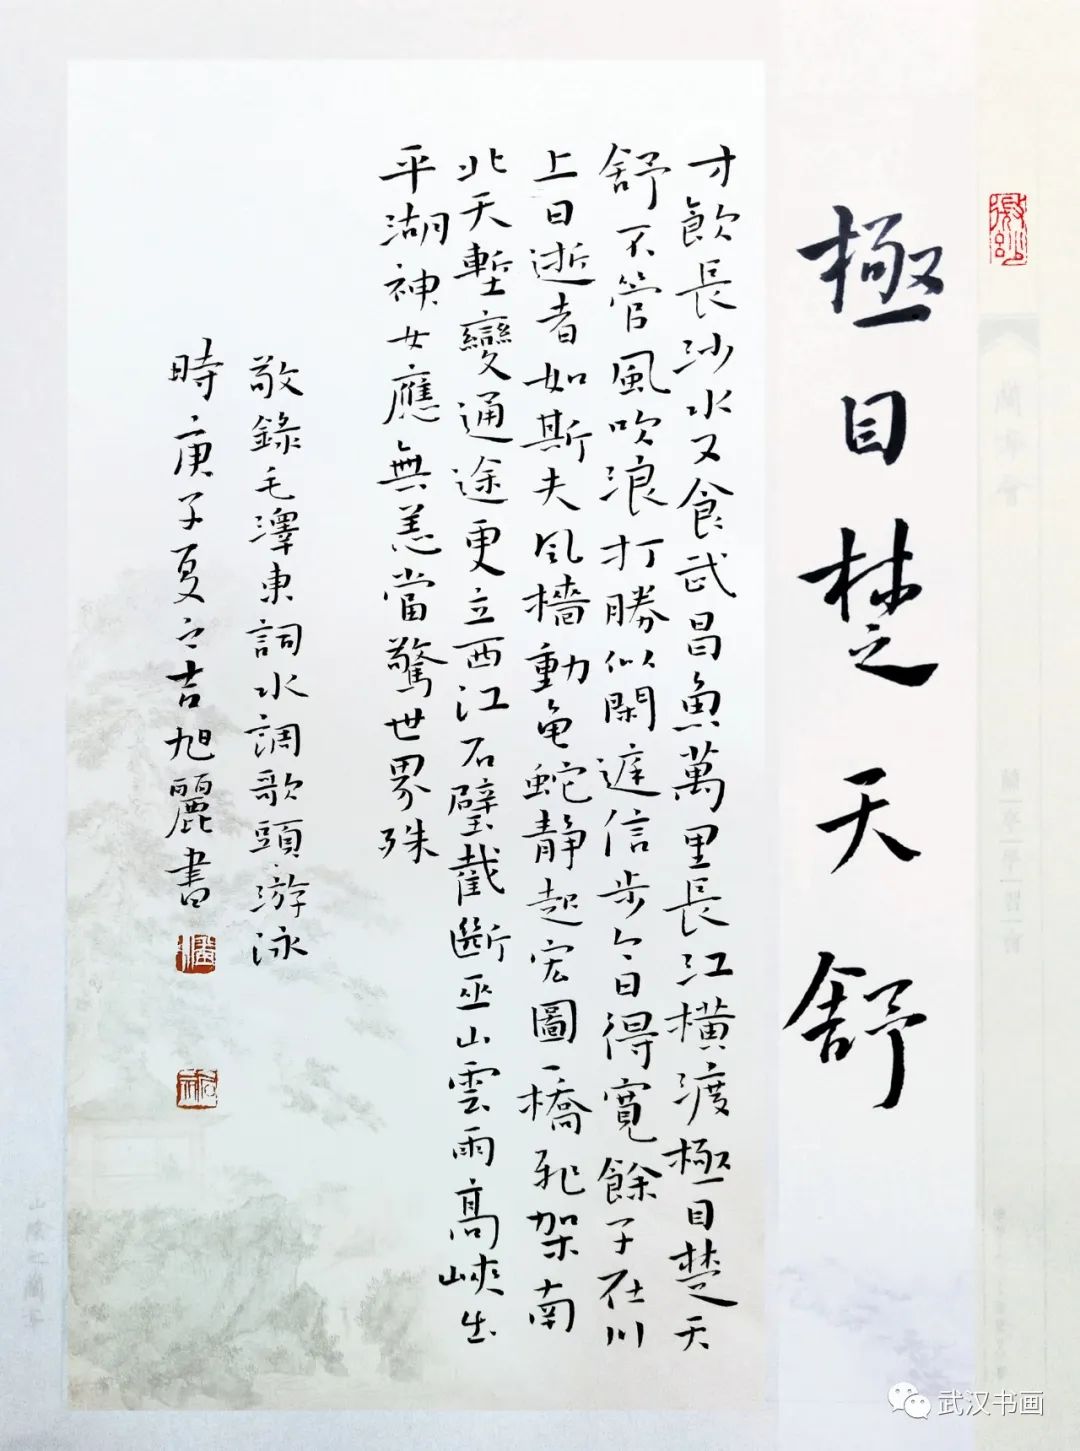 極目楚天舒
才飲長沙水又食武昌魚萬里長江橫渡極目楚天
舒不管風吹浪打勝似閑遮信步今日得寬餘子在川
上曰逝者如斯夫風檣動龜蛇靜起宏圖一橋飛架南
北天塹變通途更立西江石壁截斷巫山雲雨高峽出
平湖神女應無恙當驚世界殊
敬錄毛澤東詞水調歌頭游泳
時庚子夏之吉旭麗書
武汉书画